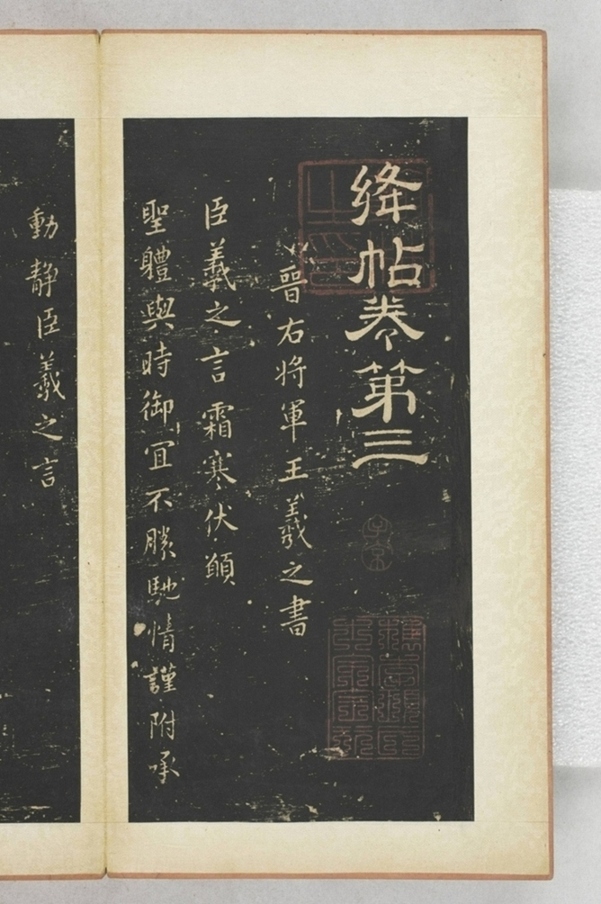 絳帖卷第三
晉右将軍王羲之書
臣羲之言霜寒伏願
聖體與時御宜不勝馳情謹附承
動静臣羲之言